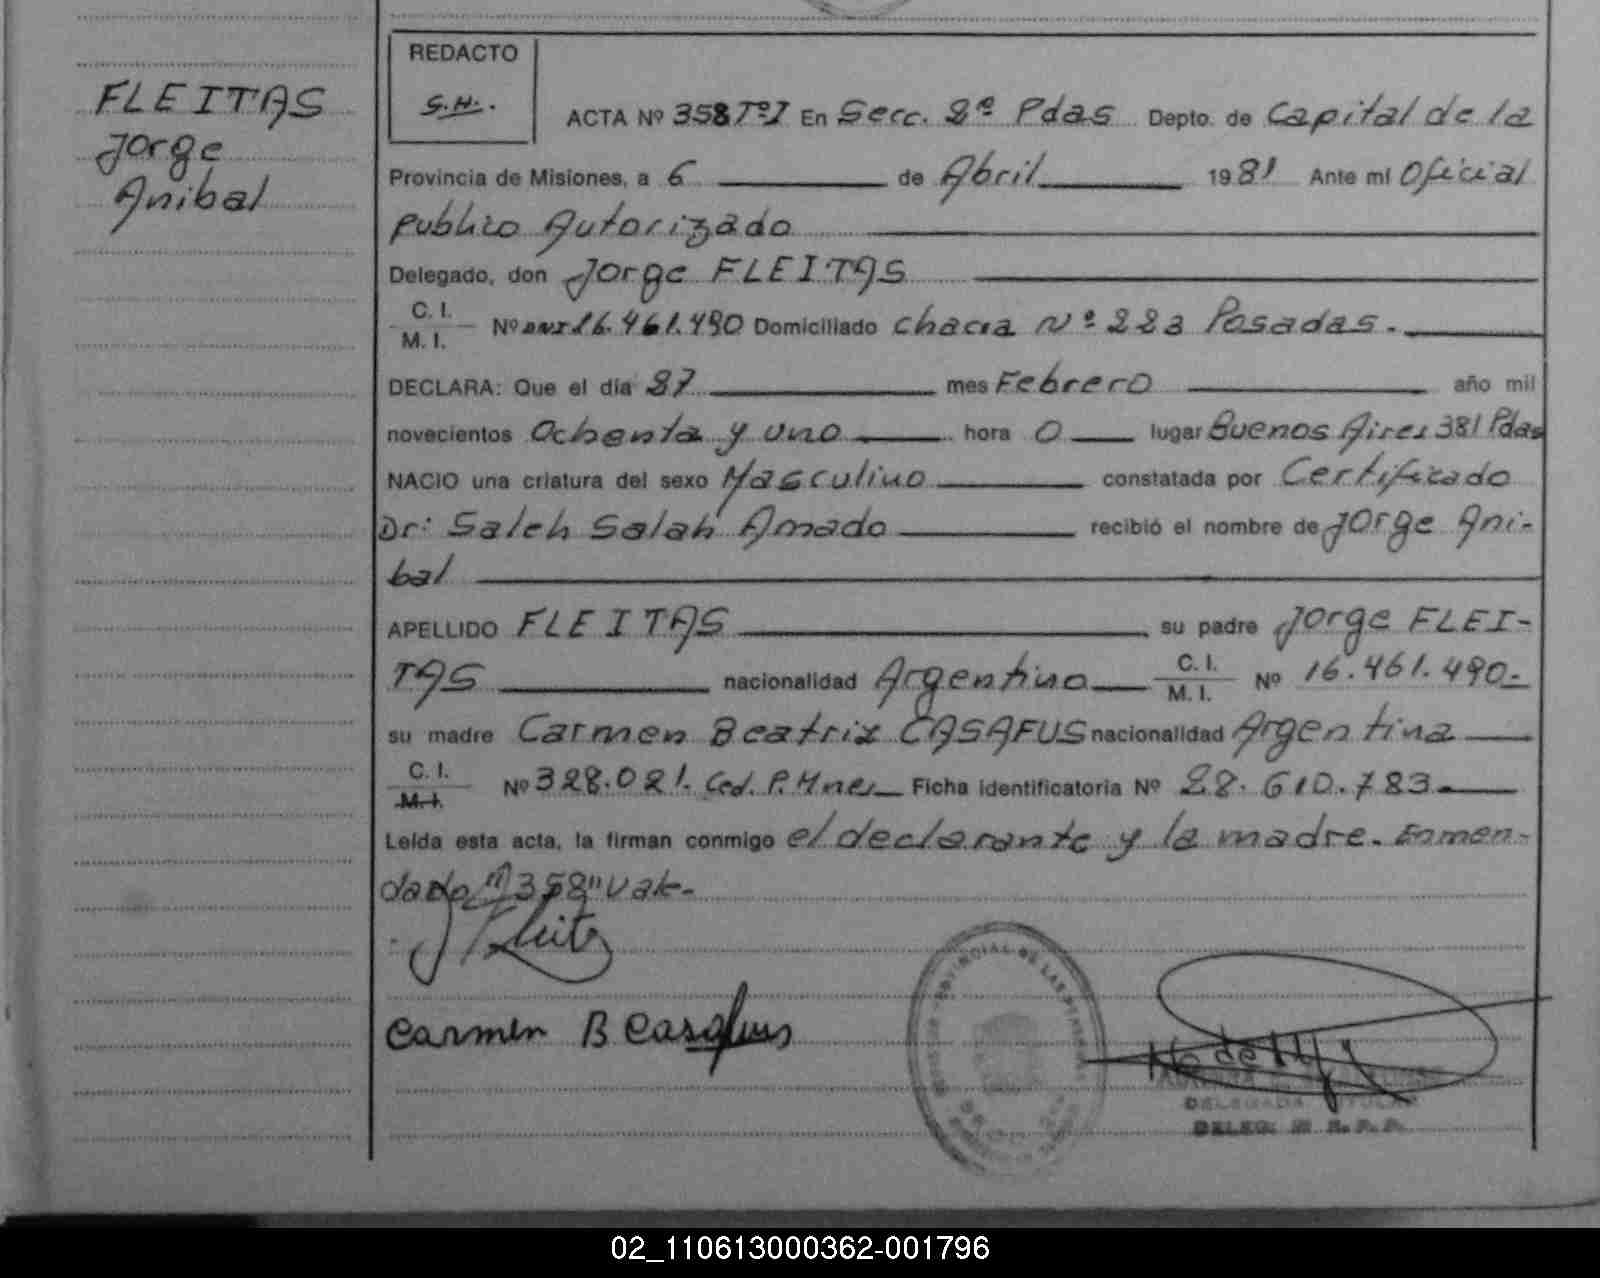 FLEITAS
Jorge
Anibal
REDACTO
S.H.
ACTA Nº 358 Tº I En Secc. 2ª Pdas Depto. de Capital de la
Provincia de Misiones, a 6 de Abril 1981 Ante mi Oficial
publico Autorizado
Delegado, don Jorge FLEITAS
C. I.
M. I. Nº DNI 16.461.490 Domiciliado chacra Nº 223 Posadas.
DECLARA: Que el día 27 mes Febrero año mil
novecientos Ochenta y uno hora 0 lugar Buenos Aires 381 Pdas
NACIO una criatura del sexo Masculino constatada por Certificado
Dr: Saleh Salah Amado recibió el nombre de Jorge Ani-
bal
APELLIDO FLEITAS su padre Jorge FLEI-
TAS nacionalidad Argentino C. I. M. I. Nº 16.461.490.-
su madre Carmen Beatriz CASAFUS nacionalidad Argentina
C. I.
M. I. Nº 328.021. Ced. P. Mnes Ficha identificatoria Nº 28.610.783
Leída esta acta, la firman conmigo el declarante y la madre. Enmen-
dado "358" vale-
J Fleitas
Carmen B Casafus
DELEGADA TITULAR
02_110613000362-001796